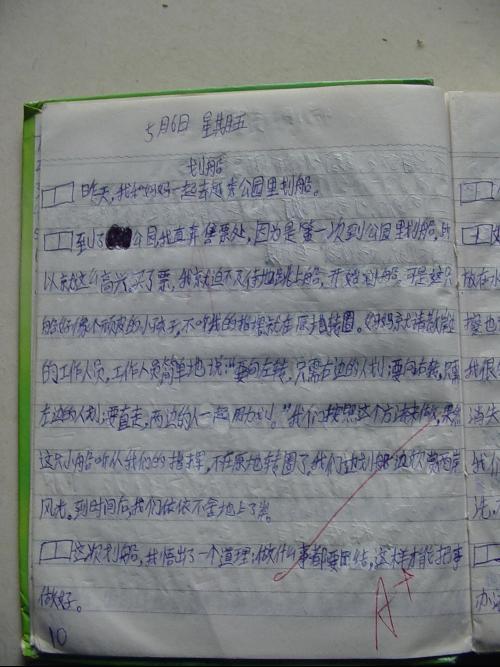 5月6日 星期五
划船
昨天,我和妈妈一起去 公园里划船。
到了 公园,我直奔售票处,因为是第一次到公园里划船,所
以就这么高兴。买了票,我就迫不及待地跳上船,开始划船,可是这只
船好像个顽皮的小孩子,不听我的指挥就在原地转圈。妈妈就请教附近
的工作人员,工作人员简单地说:“要向左转,只需右边的人划;要向右转,只需
左边的人划;要直走,两边的人一起用力划。”我们按照这个方法来做,果然
这只小船听从我们的指挥,不在原地转圈了。我们边划船边欣赏两岸
风光。到时间后,我们依依不舍地上了岸。
这次划船,我悟出了一个道理:做什么事都要团结,这样才能把事
做好。
A+
10
放在水
我很
消失
我们
先,
办